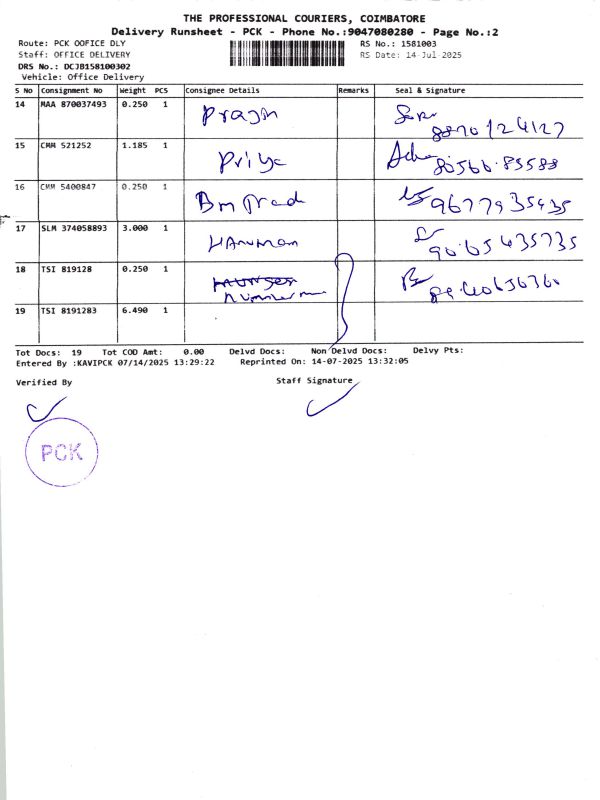 THE PROFESSIONAL COURIERS, COIMBATORE
Delivery Runsheet - PCK - Phone No.:9047080280 - Page No.:2
Route: PCK OOFICE DLY RS No.: 1581003
Staff: OFFICE DELIVERY RS Date: 14-Jul-2025
DRS No.: DCJB158100302
Vehicle: Office Delivery
S No Consignment No Weight PCS Consignee Details Remarks Seal & Signature
14 MAA 870037493 0.250 1
8870124127
15 CMM 521252 1.185 1 Priya
80566.85588
16 CMM 5400847 0.250 1
9677935435
17 SLM 374058893 3.000 1 HAnuman
90.65435735
18 TSI 819128 0.250 1
19 TSI 8191283 6.490 1
Tot Docs: 19 Tot COD Amt: 0.00 Delvd Docs: Non Delvd Docs: Delvy Pts:
Entered By :KAVIPCK 07/14/2025 13:29:22 Reprinted On: 14-07-2025 13:32:05
Verified By Staff Signature
PCK